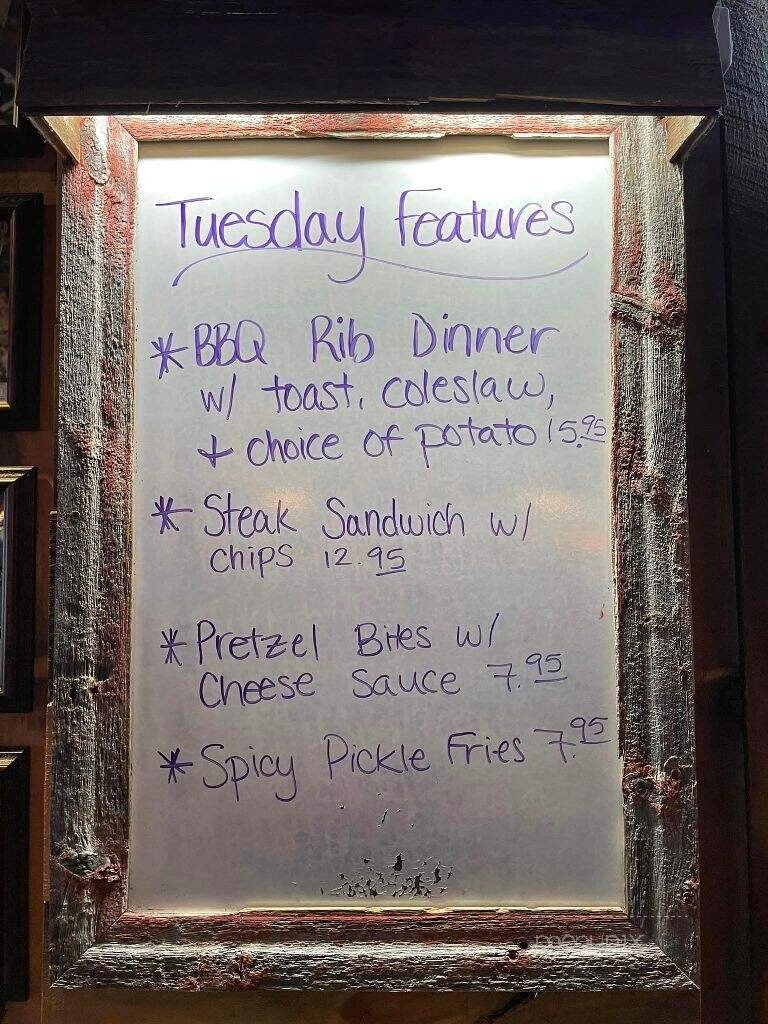 Tuesday Features
* BBQ Rib Dinner
w/ toast, coleslaw,
+ choice of potato 15.95
* Steak Sandwich w/
chips 12.95
* Pretzel Bites w/
Cheese Sauce 7.95
* Spicy Pickle Fries 7.95
menupix